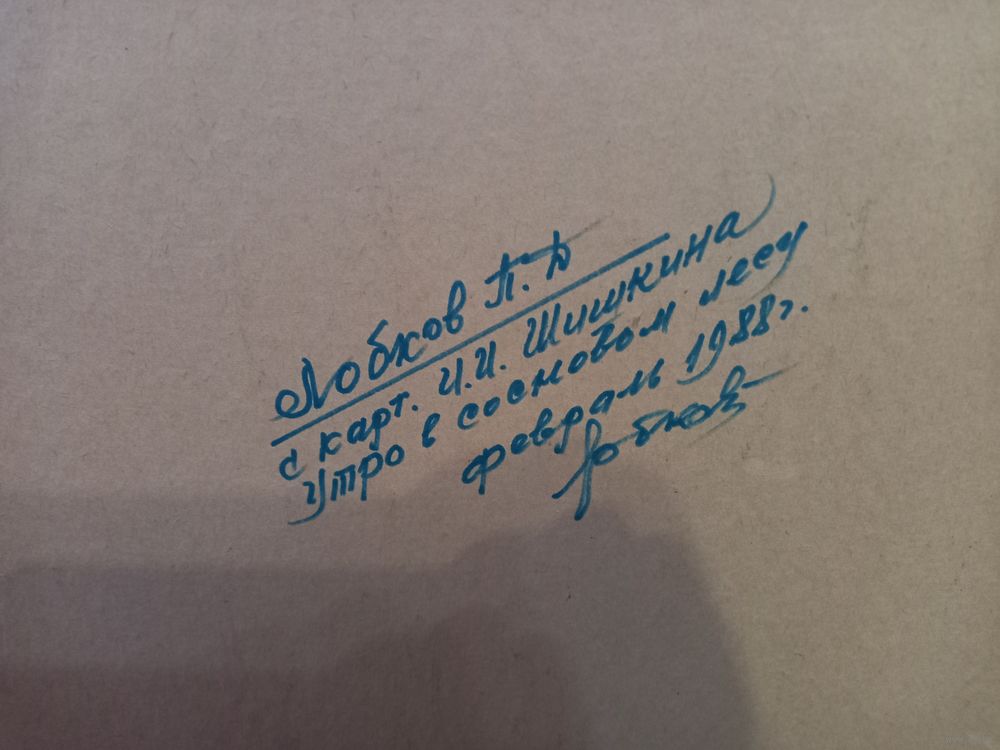 Лобков П. Д
с карт. И.И. Шишкина
Утро в сосновом лесу
февраль 1988г.
Лобков